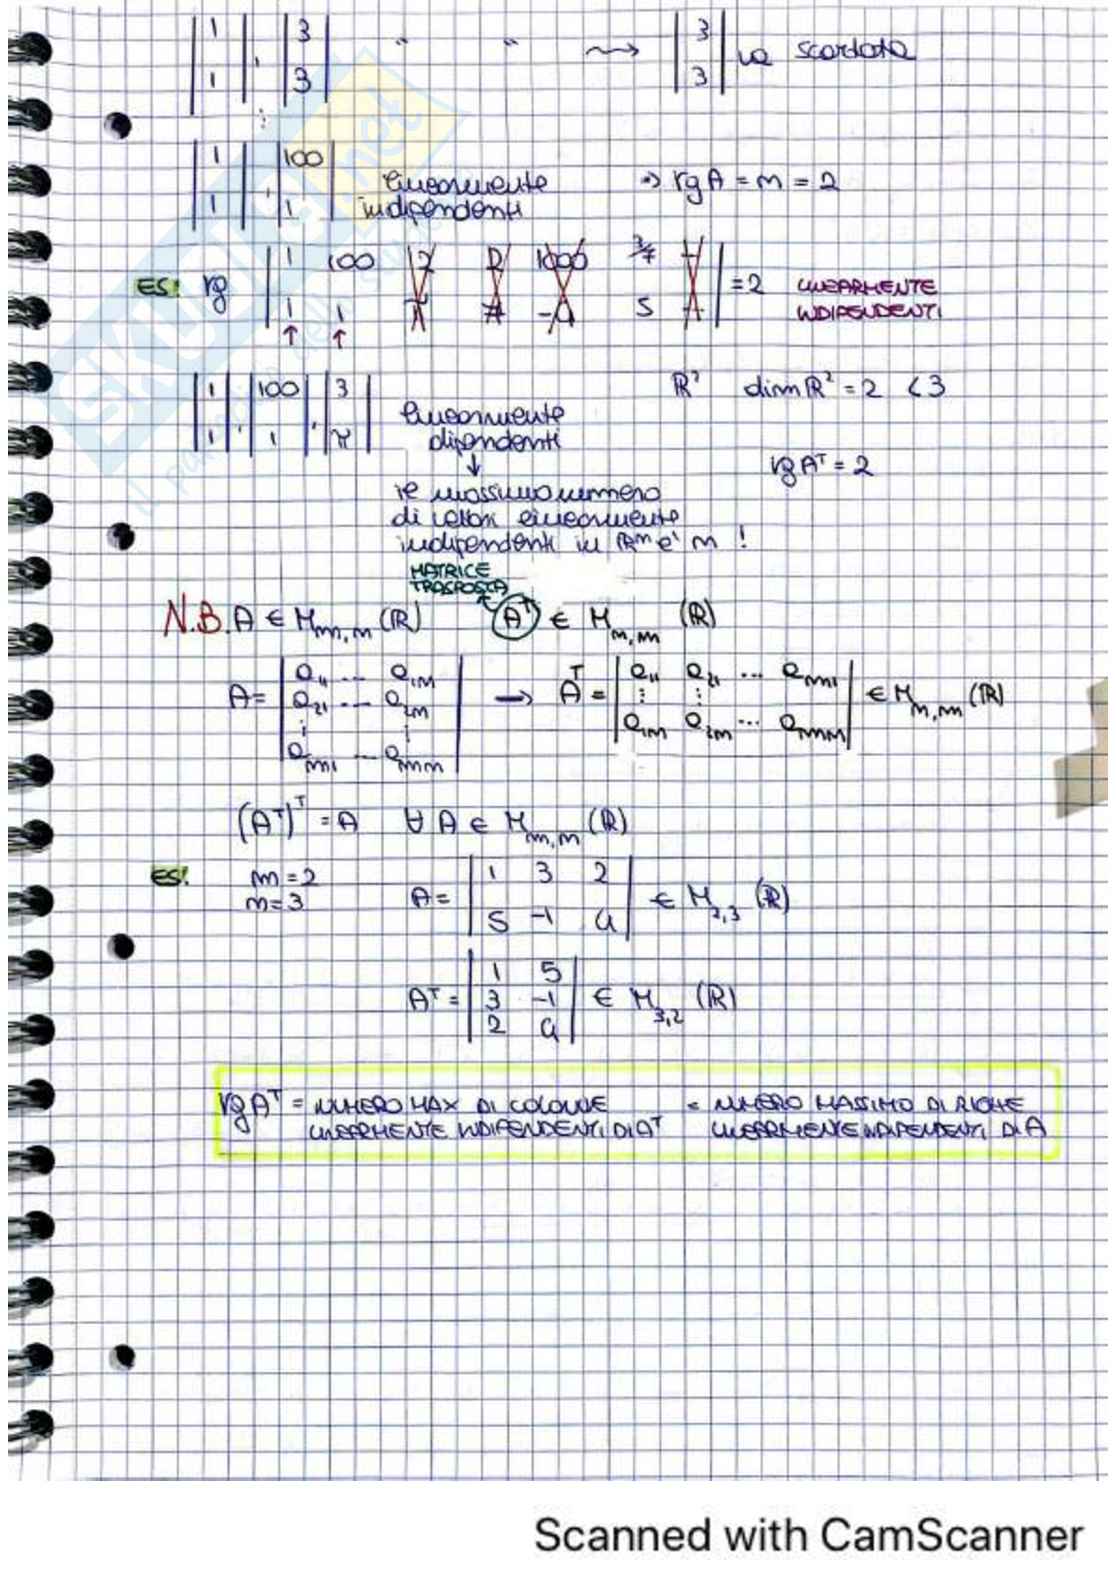 |1 1| , |3 3| " " ⇝ |3 3| va scartata
|1 1| , |100 1| linearmente indipendenti ⇒ rg A = m = 2
ES! rg |1 100 2 1000 3/7
1 1 π -4 5| = 2 LINEARMENTE INDIPENDENTI
|1 1| , |100 1| , |3 π| linearmente dipendenti ℝ² dim ℝ² = 2 < 3
↓ rg Aᵀ = 2
il massimo numero
di vettori linearmente
indipendenti in ℝᵐ è m !
MATRICE
TRASPOSTA
N.B. A ∈ M m,n (ℝ) Aᵀ ∈ M n,m (ℝ)
A = |a₁₁ ... a₁n
a₂₁ ... a₂n
⋮ ⋮
am₁ ... amn| → Aᵀ = |a₁₁ a₂₁ ... am₁
⋮ ⋮
a₁n a₂n ... amn| ∈ M n,m (ℝ)
(Aᵀ)ᵀ = A ∀ A ∈ M m,n (ℝ)
ES! m = 2
n = 3
A = |1 3 2
5 -1 4| ∈ M 2,3 (ℝ)
Aᵀ = |1 5
3 -1
2 4| ∈ M 3,2 (ℝ)
rg Aᵀ = NUMERO MAX DI COLONNE = NUMERO MASSIMO DI RIGHE
LINEARMENTE INDIPENDENTI DI Aᵀ LINEARMENTE INDIPENDENTI DI A
Scanned with CamScanner